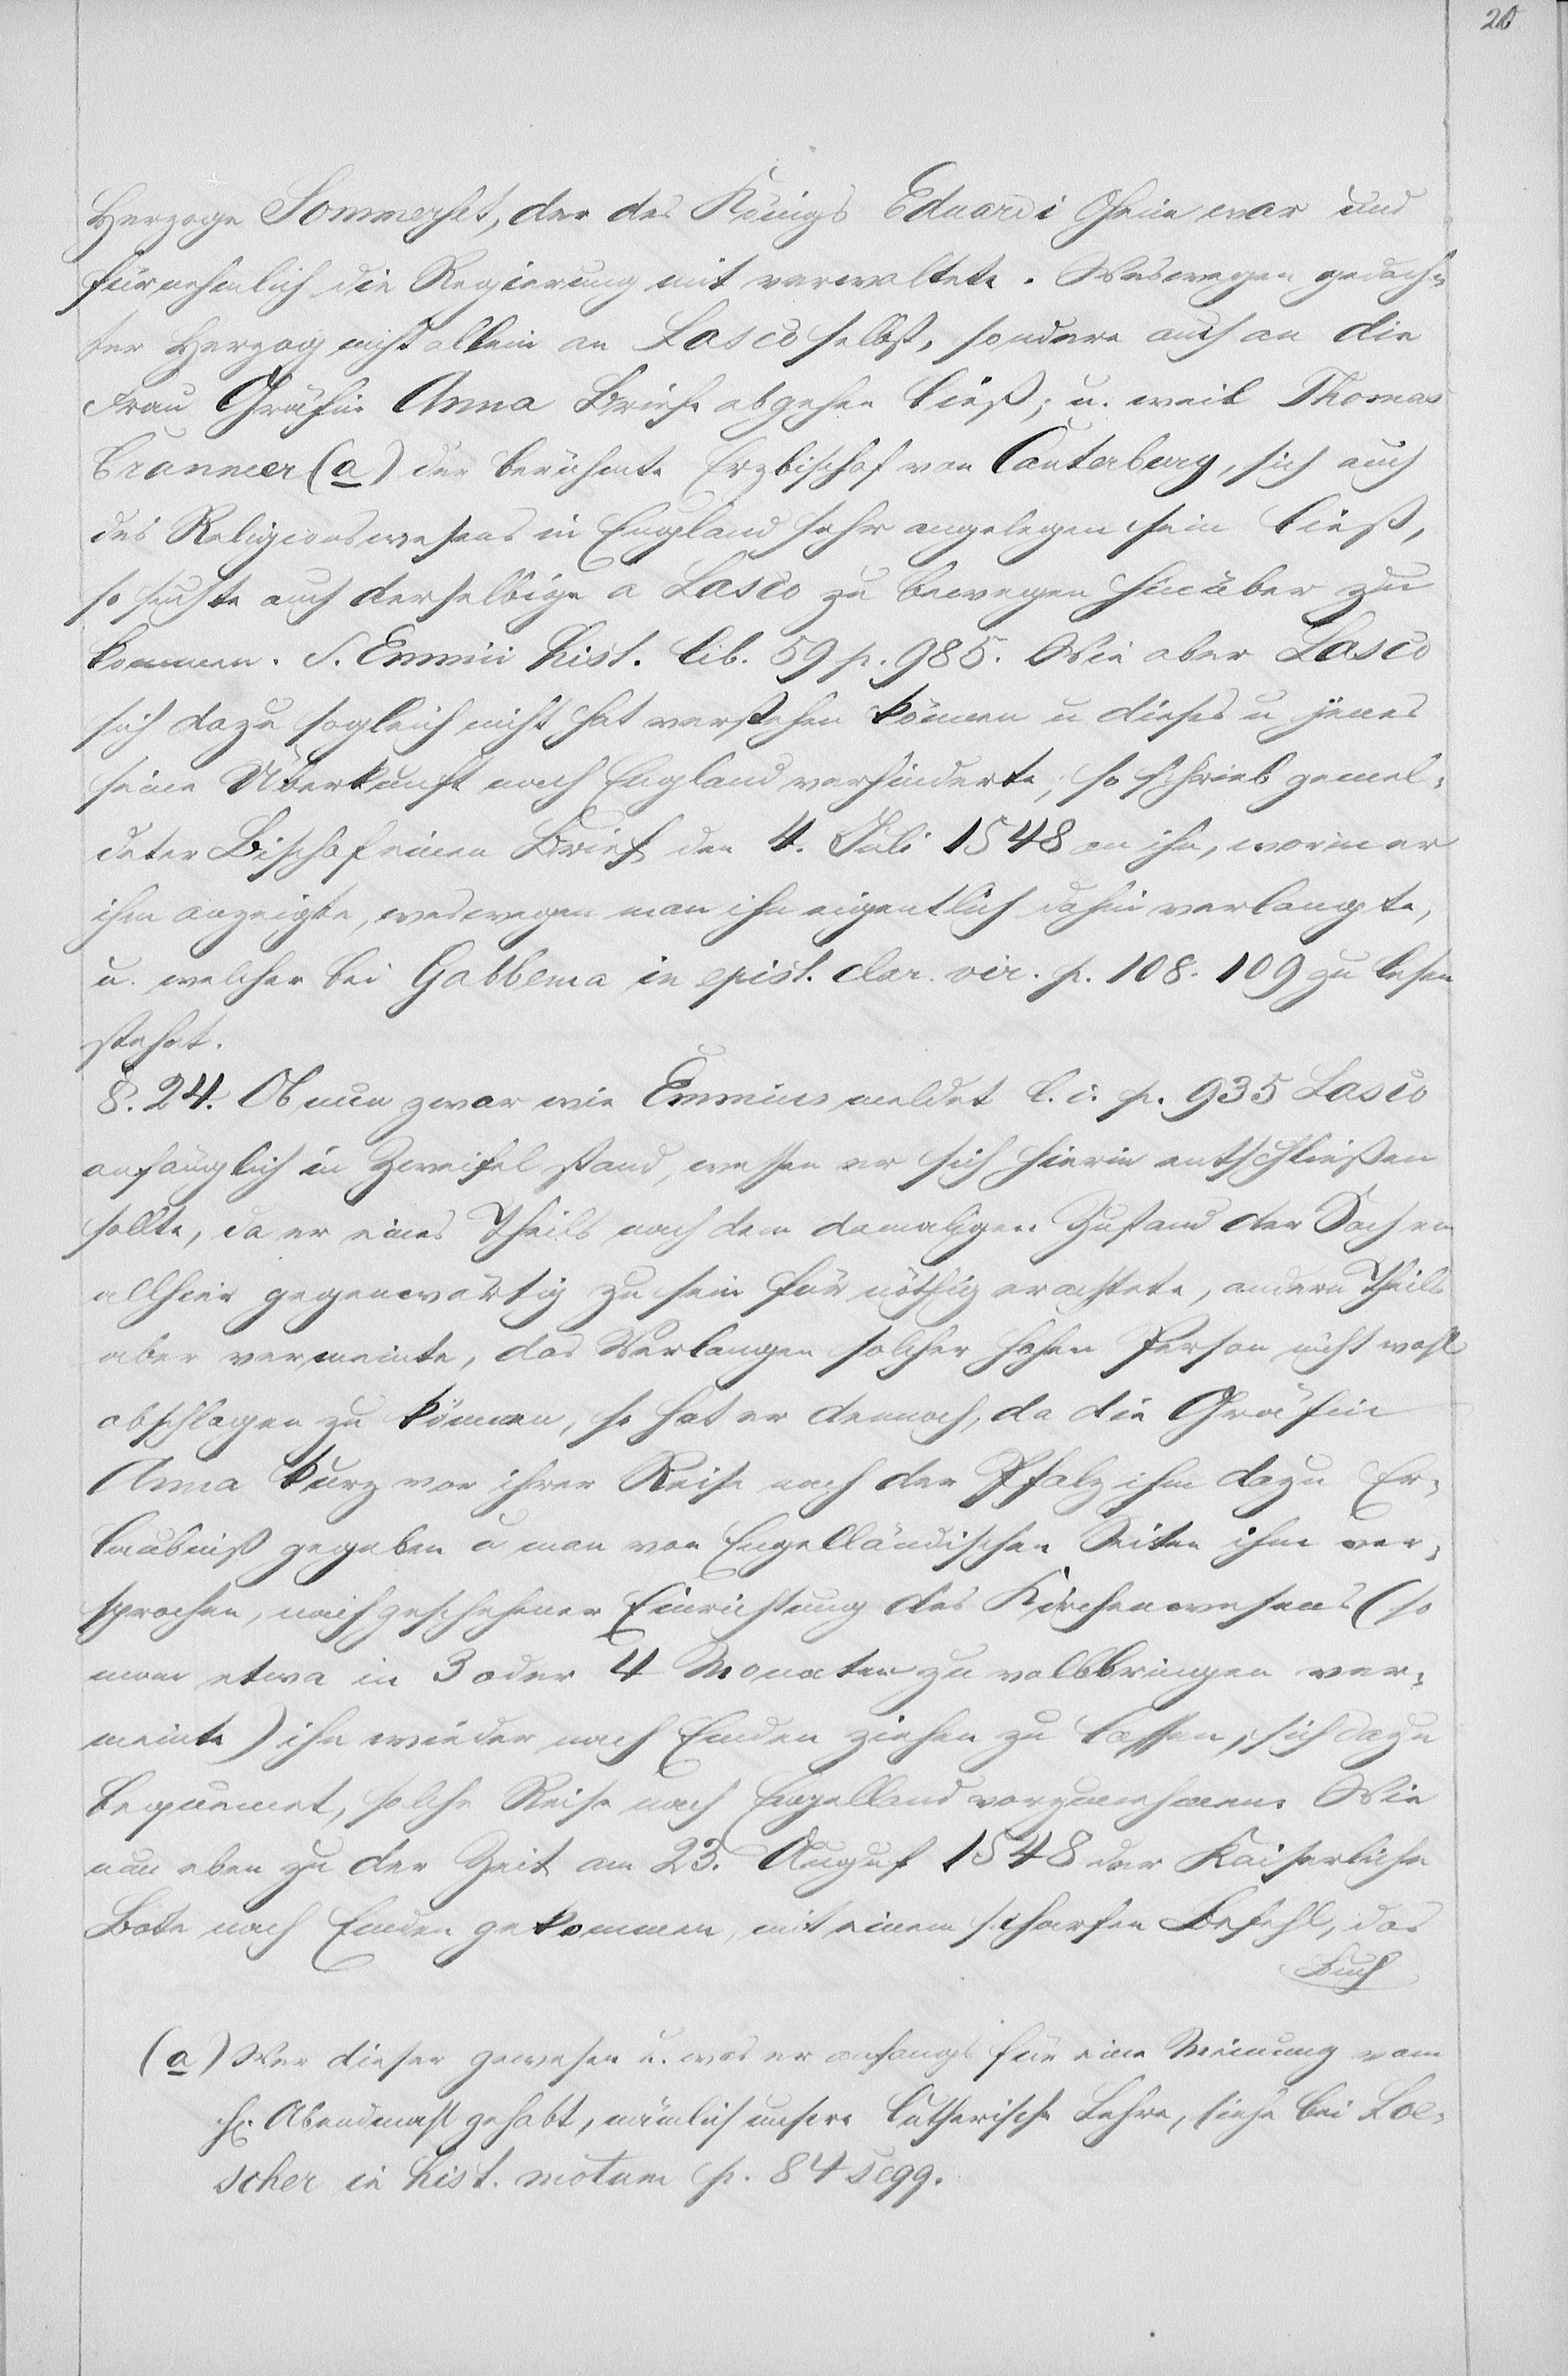 20
Herzoge Sommerset, der des Königs Eduardi Oheim war und
fürnehmlich die Regierung mit verwaltete. Weswegen gedach-
ter Herzog nicht allein an Lasco selbst, sondern auch an die
Frau Gräfin Anna Briefe abgehen ließ; u. weil Thomas
Cranmer (a) der berühmte Erzbischof von Canterbury, sich auch
des Religionswesens in England sehr angelegen sein ließ,
so suchte auch derselbige a Lasco zu bewegen hinüber zu
kommen. S. Emmii hist. lib. 59 p. 985. Wie aber Lasco
sich dazu sogleich nicht hat verstehen können u dieses u jenes
seine Überkunft nach England verhinderte; so schrieb gemel-
deter Bischof einen Brief den 4. Juli 1548 an ihn, worin er
ihm anzeigte, weswegen man ihn eigentlich dahin verlangte,
u. welcher bei Gabbema in epist. clar. vir. p. 108. 109 zu lesen
stehet.
§. 24. Ob nun zwar wie Emmius meldet l. c. p. 935 Lasco
anfänglich in Zweifel stand, wessen er sich hierin entschließen
sollte, da er eines Theils nach dem damaligen Zustand der Sachen
allhier gegenwärtig zu sein für nöthig erachtete, andern Theils
aber vermeinte, das Verlangen solcher hohen Person nicht wohl
abschlagen zu können, so hat er dennoch, da die Gräfin
Anna kurz vor ihrer Reise nach der Pfalz ihm dazu Er-
laubniß gegeben u man von Engelländischen Seiten ihm ver-
sprochen, nach geschehener Einrichtung des Kirchenwesens (so
man etwa in 3 oder 4 Monaten zu vollbringen ver-
meinte) ihn wieder nach Emden ziehen zu lassen, sich dazu
bequemet, solche Reise nach Engelland vorzunehmen. Wie
nun eben zu der Zeit am 23. August 1548 der Kaiserliche
Bote nach Emden gekommen, mit einem scharfen Befehl, das
Buch
(a) Wer dieser gewesen u. was er anfangs für eine Meinung vom
h. Abendmahl gehabt, nämlich unsere lutherische Lehre, siehe bei Loe-
scher in hist. motuum p. 84 seqq.